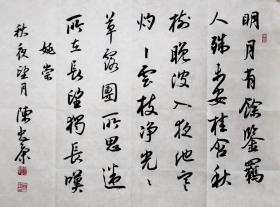 明月有餘鑒羈
人殊未安桂含秋
樹晚波入夜池寒
灼〻雲枝净光〻
草露團所思迷
所在長望獨長嘆
姚崇
秋夜望月 陳